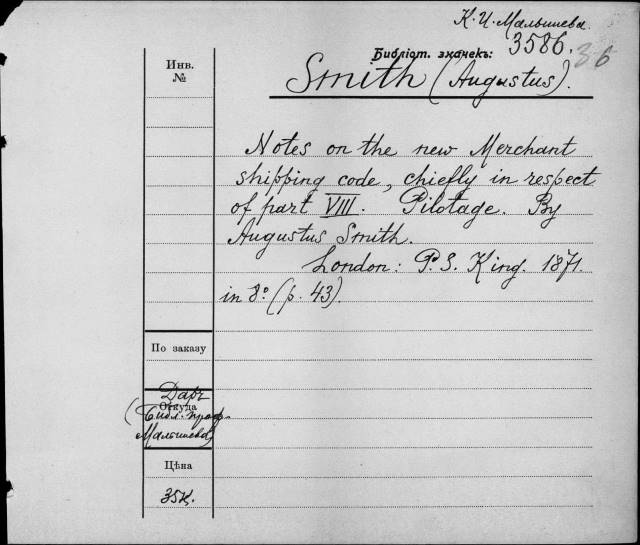 К. И. Малышева.
Библіот. значекъ: 3586. 36
Инв.
№
Smith (Augustus).
Notes on the new Merchant
shipping code, chiefly in respect
of part VIII. Pilotage. By
Augustus Smith.
London: P. S. King. 1871.
in 8º (p. 43).
По заказу
Откуда
Даръ
(Библ. проф.
Малышева)
Цѣна
35к.